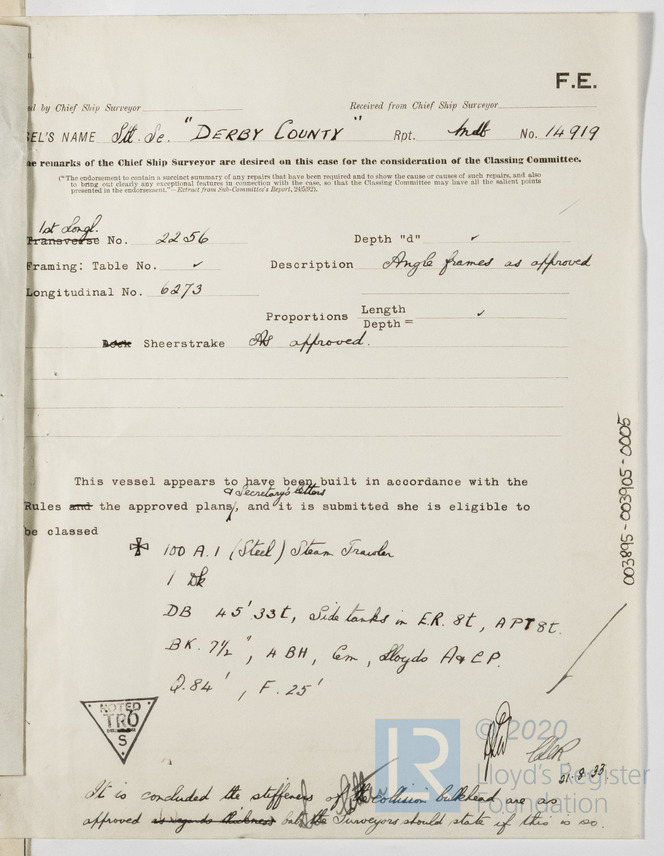 F.E.
d by Chief Ship Surveyor Received from Chief Ship Surveyor
SEL'S NAME Stl. Sc. "DERBY COUNTY" Rpt. Mdb No. 14919
he remarks of the Chief Ship Surveyor are desired on this case for the consideration of the Classing Committee.
("The endorsement to contain a succinct summary of any repairs that have been required and to show the cause or causes of such repairs, and also
to bring out clearly any exceptional features in connection with the case, so that the Classing Committee may have all the salient points
presented in the endorsement."—Extract from Sub-Committee's Report, 24/5/92).
1st Longl.
Transverse No. 2256 Depth "d" ✓
Framing: Table No. ✓ Description Angle frames as approved
Longitudinal No. 6273
Proportions Length
Depth = ✓
Deck Sheerstrake As approved.
This vessel appears to have been built in accordance with the
& Secretary's letters
Rules and the approved plans, and it is submitted she is eligible to
be classed
✠ 100 A.1 (Steel) Steam Trawler
1 Dk
DB 45' 33t, Side tanks in E.R. 8t, APT 8t.
BK. 7½", 4 BH, Cem, Lloyds A & C.P.
Q.84', F.25'
NOTED
TRO
S
© 2020
31.8.33
LR
Lloyd's Register
Foundation
It is concluded the stiffeners of the collision bulkhead are as
approved as regards thickness but the Surveyors should state if this is so.
003895-003905-0005